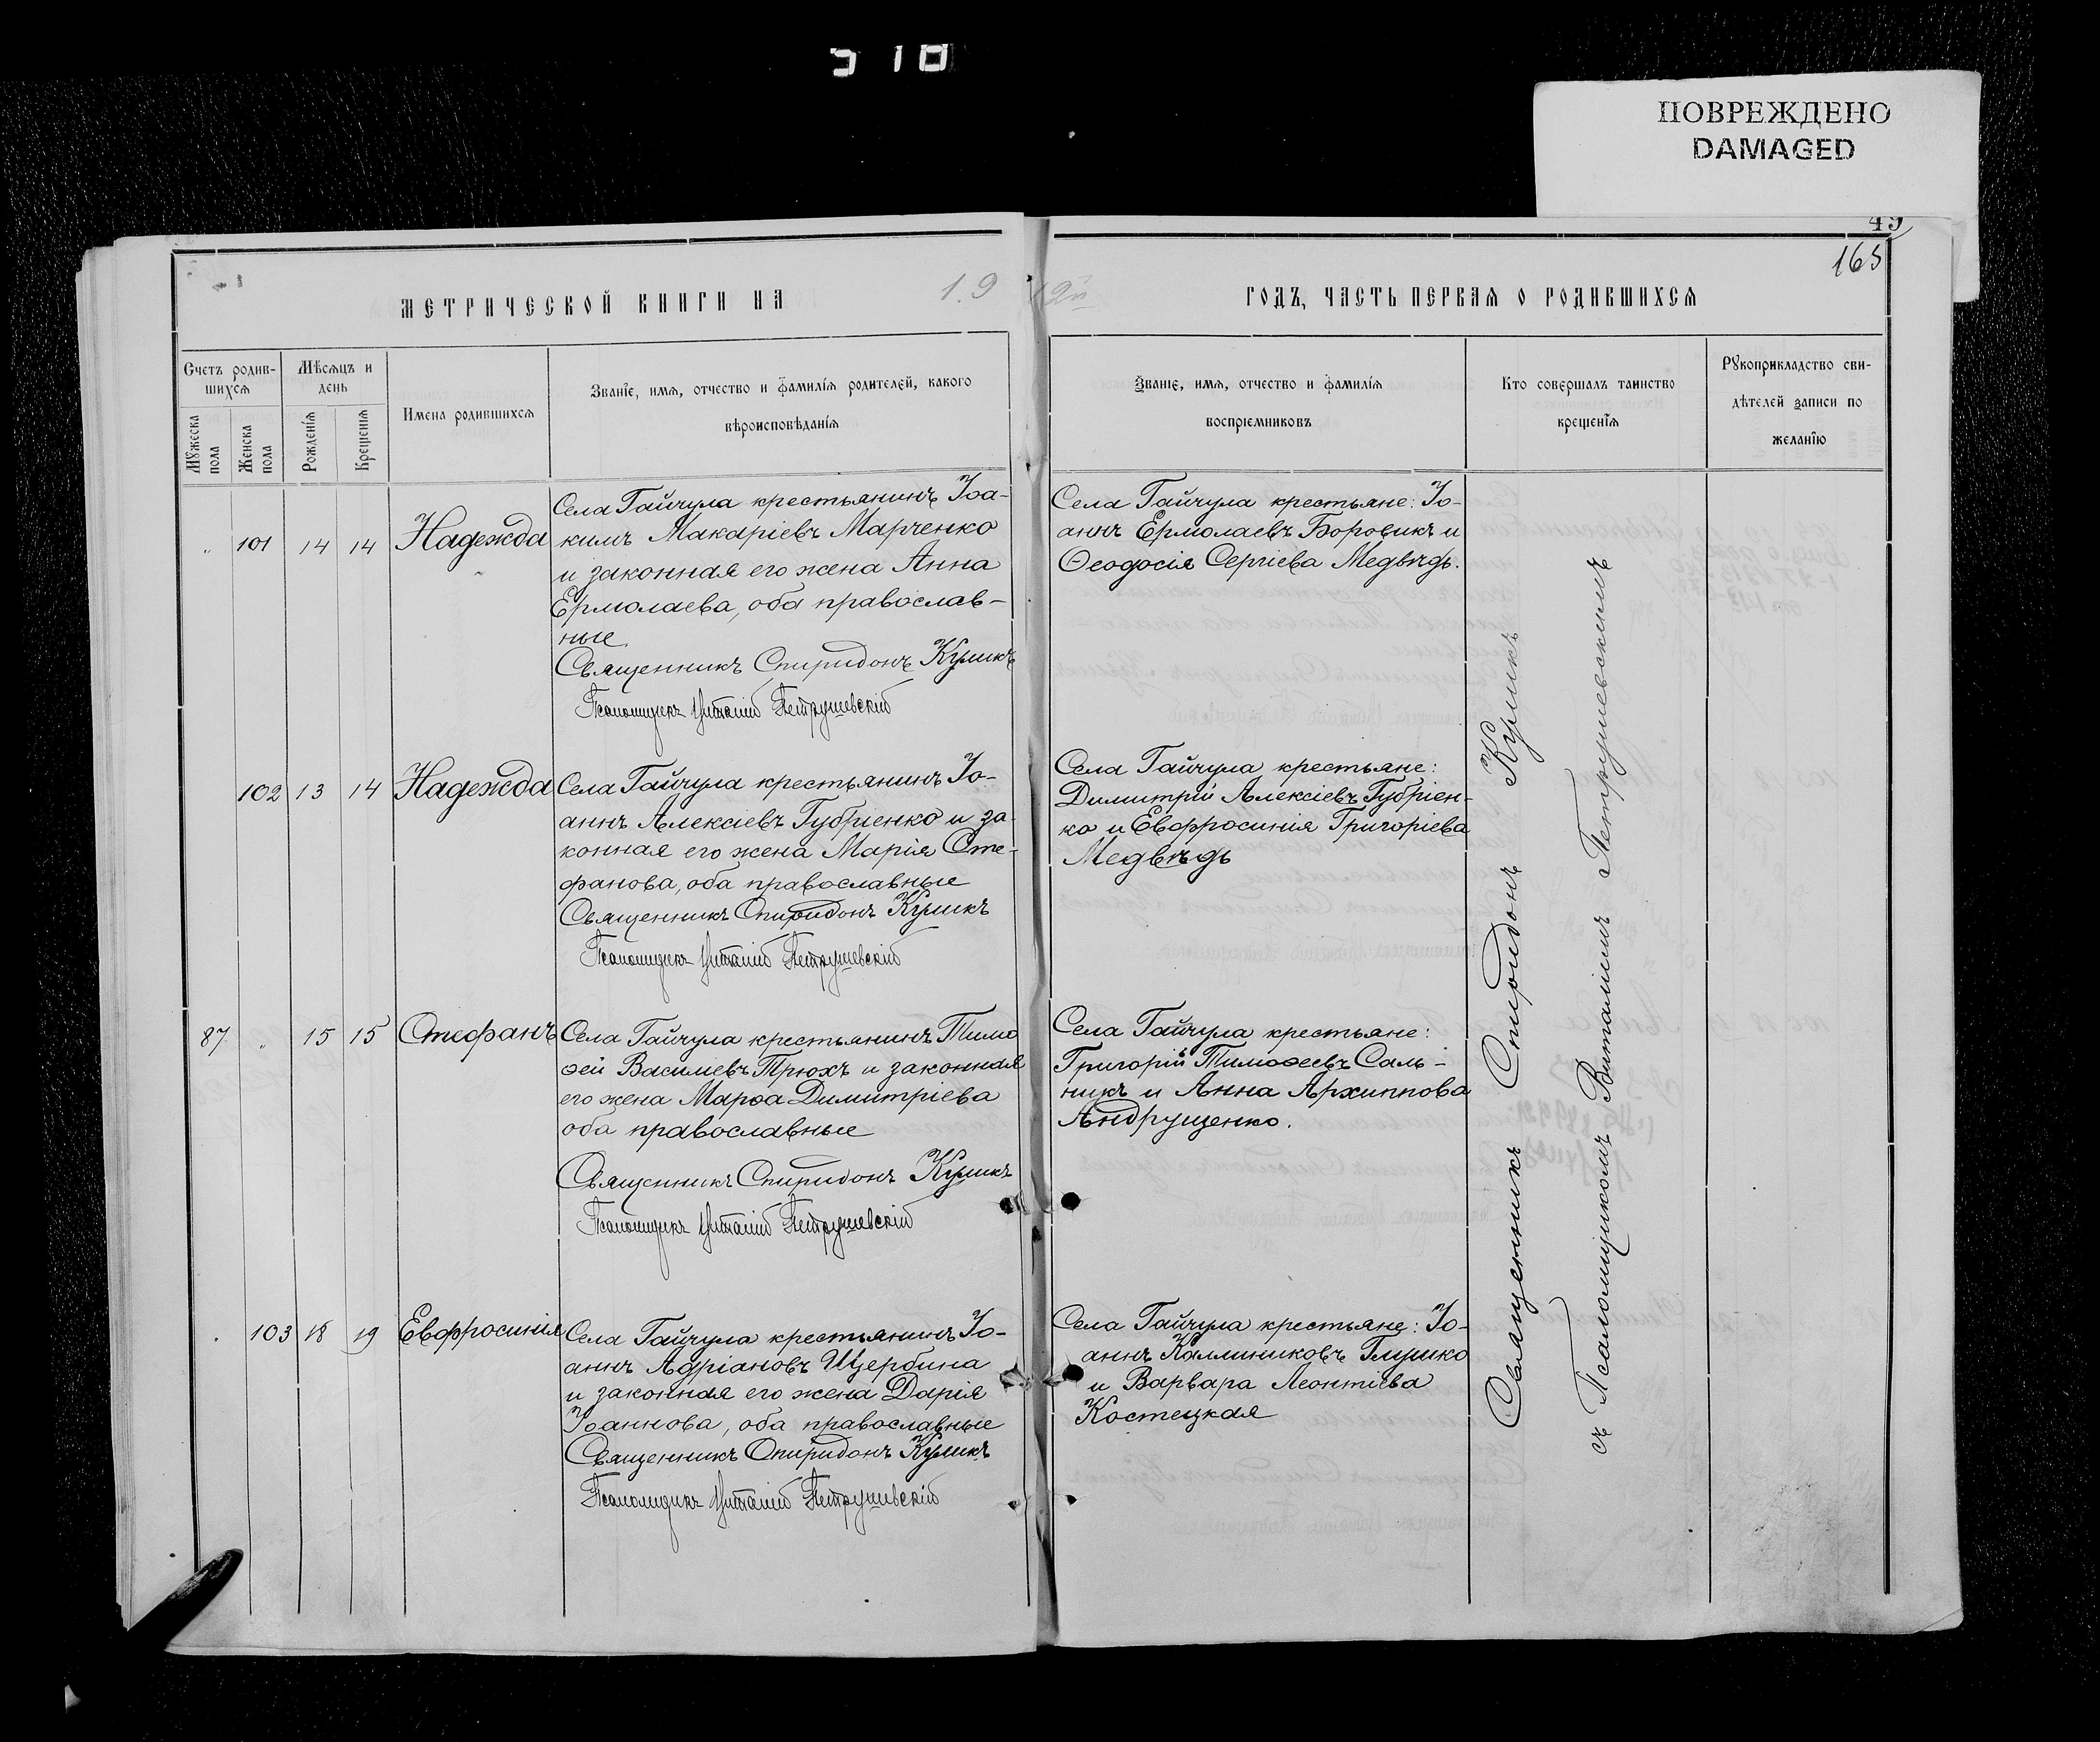 5 18
ПОВРЕЖДЕНО
DAMAGED
49
165
МЕТРИЧЕСКОЙ КНИГИ НА 19
ГОДЪ, ЧАСТЬ ПЕРВАЯ О РОДИВШИХСЯ
Счетъ родив-
шихся
Мѣсяцъ и
день
Мꙋжеска
пола
Женска
пола
Рожденїя
Крещенїя
Имена родившихся
Званїе, имя, отчество и фамилїя родителей, какого
вѣроисповѣданїя
Званїе, имя, отчество и фамилїя
воспрїемниковъ
Кто совершалъ таинство
крещенїя
Рꙋкоприкладство сви-
дѣтелей записи по
желанїю
„ 101 14 14 Надежда
Села Гайчула крестьянинъ Іоа-
кимъ Макаріевъ Марченко
и законная его жена Анна
Ермолаева, оба православ-
ные
Священникъ Спиридонъ Куликъ
Псаломщикъ Виталій Петрушевскій
Села Гайчула крестьяне: Іо-
аннъ Ермолаевъ Боровикъ и
Ѳеодосія Сергіева Медвѣдь.
102 13 14 Надежда
Села Гайчула крестьянинъ Іо-
аннъ Алексіевъ Губріенко и за-
конная его жена Марія Сте-
фанова, оба православные
Священникъ Спиридонъ Куликъ
Псаломщикъ Виталій Петрушевскій
Села Гайчула крестьяне:
Димитрій Алексіевъ Губріен-
ко и Евфросинія Григоріева
Медвѣдь
87 „ 15 15 Стефанъ
Села Гайчула крестьянинъ Тимо
ѳей Василіевъ Трюхъ и законная
его жена Марѳа Димитріева
оба православные
Священникъ Спиридонъ Куликъ
Псаломщикъ Виталій Петрушевскій
Села Гайчула крестьяне:
Григорій Тимоѳеевъ Саль-
никъ и Анна Архиппова
Андрущенко.
103 18 19 Евфросинія
Села Гайчула крестьянинъ Іо-
аннъ Адріановъ Щербина
и законная его жена Дарія
Іоаннова, оба православные
Священникъ Спиридонъ Куликъ
Псаломщикъ Виталій Петрушевскій
Села Гайчула крестьяне: Іо-
аннъ Каллиниковъ Глушко
и Варвара Леонтіева
Костецкая
Священникъ Спиридонъ Куликъ
съ Псаломщикомъ Виталіемъ Петрушевскимъ